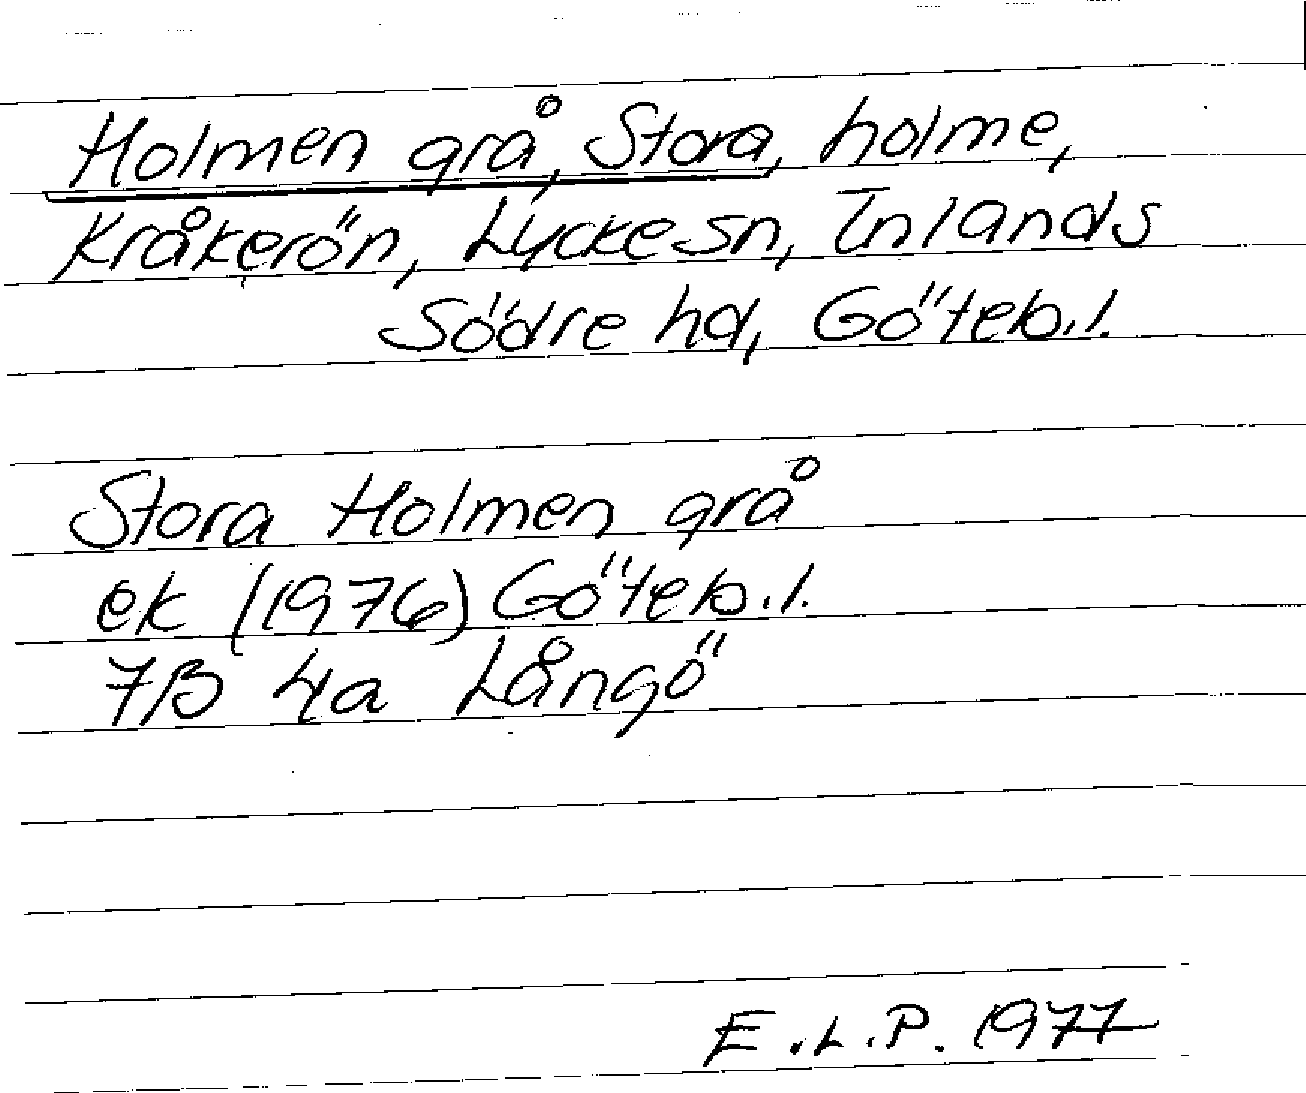 Holmen grå, Stora, holme,
Kråkerön, Lycke sn, Inlands
Södre hd, Göteb.l.
Stora Holmen grå
ek (1976) Göteb.l.
7B 4a Långö
E.L.P. 1977